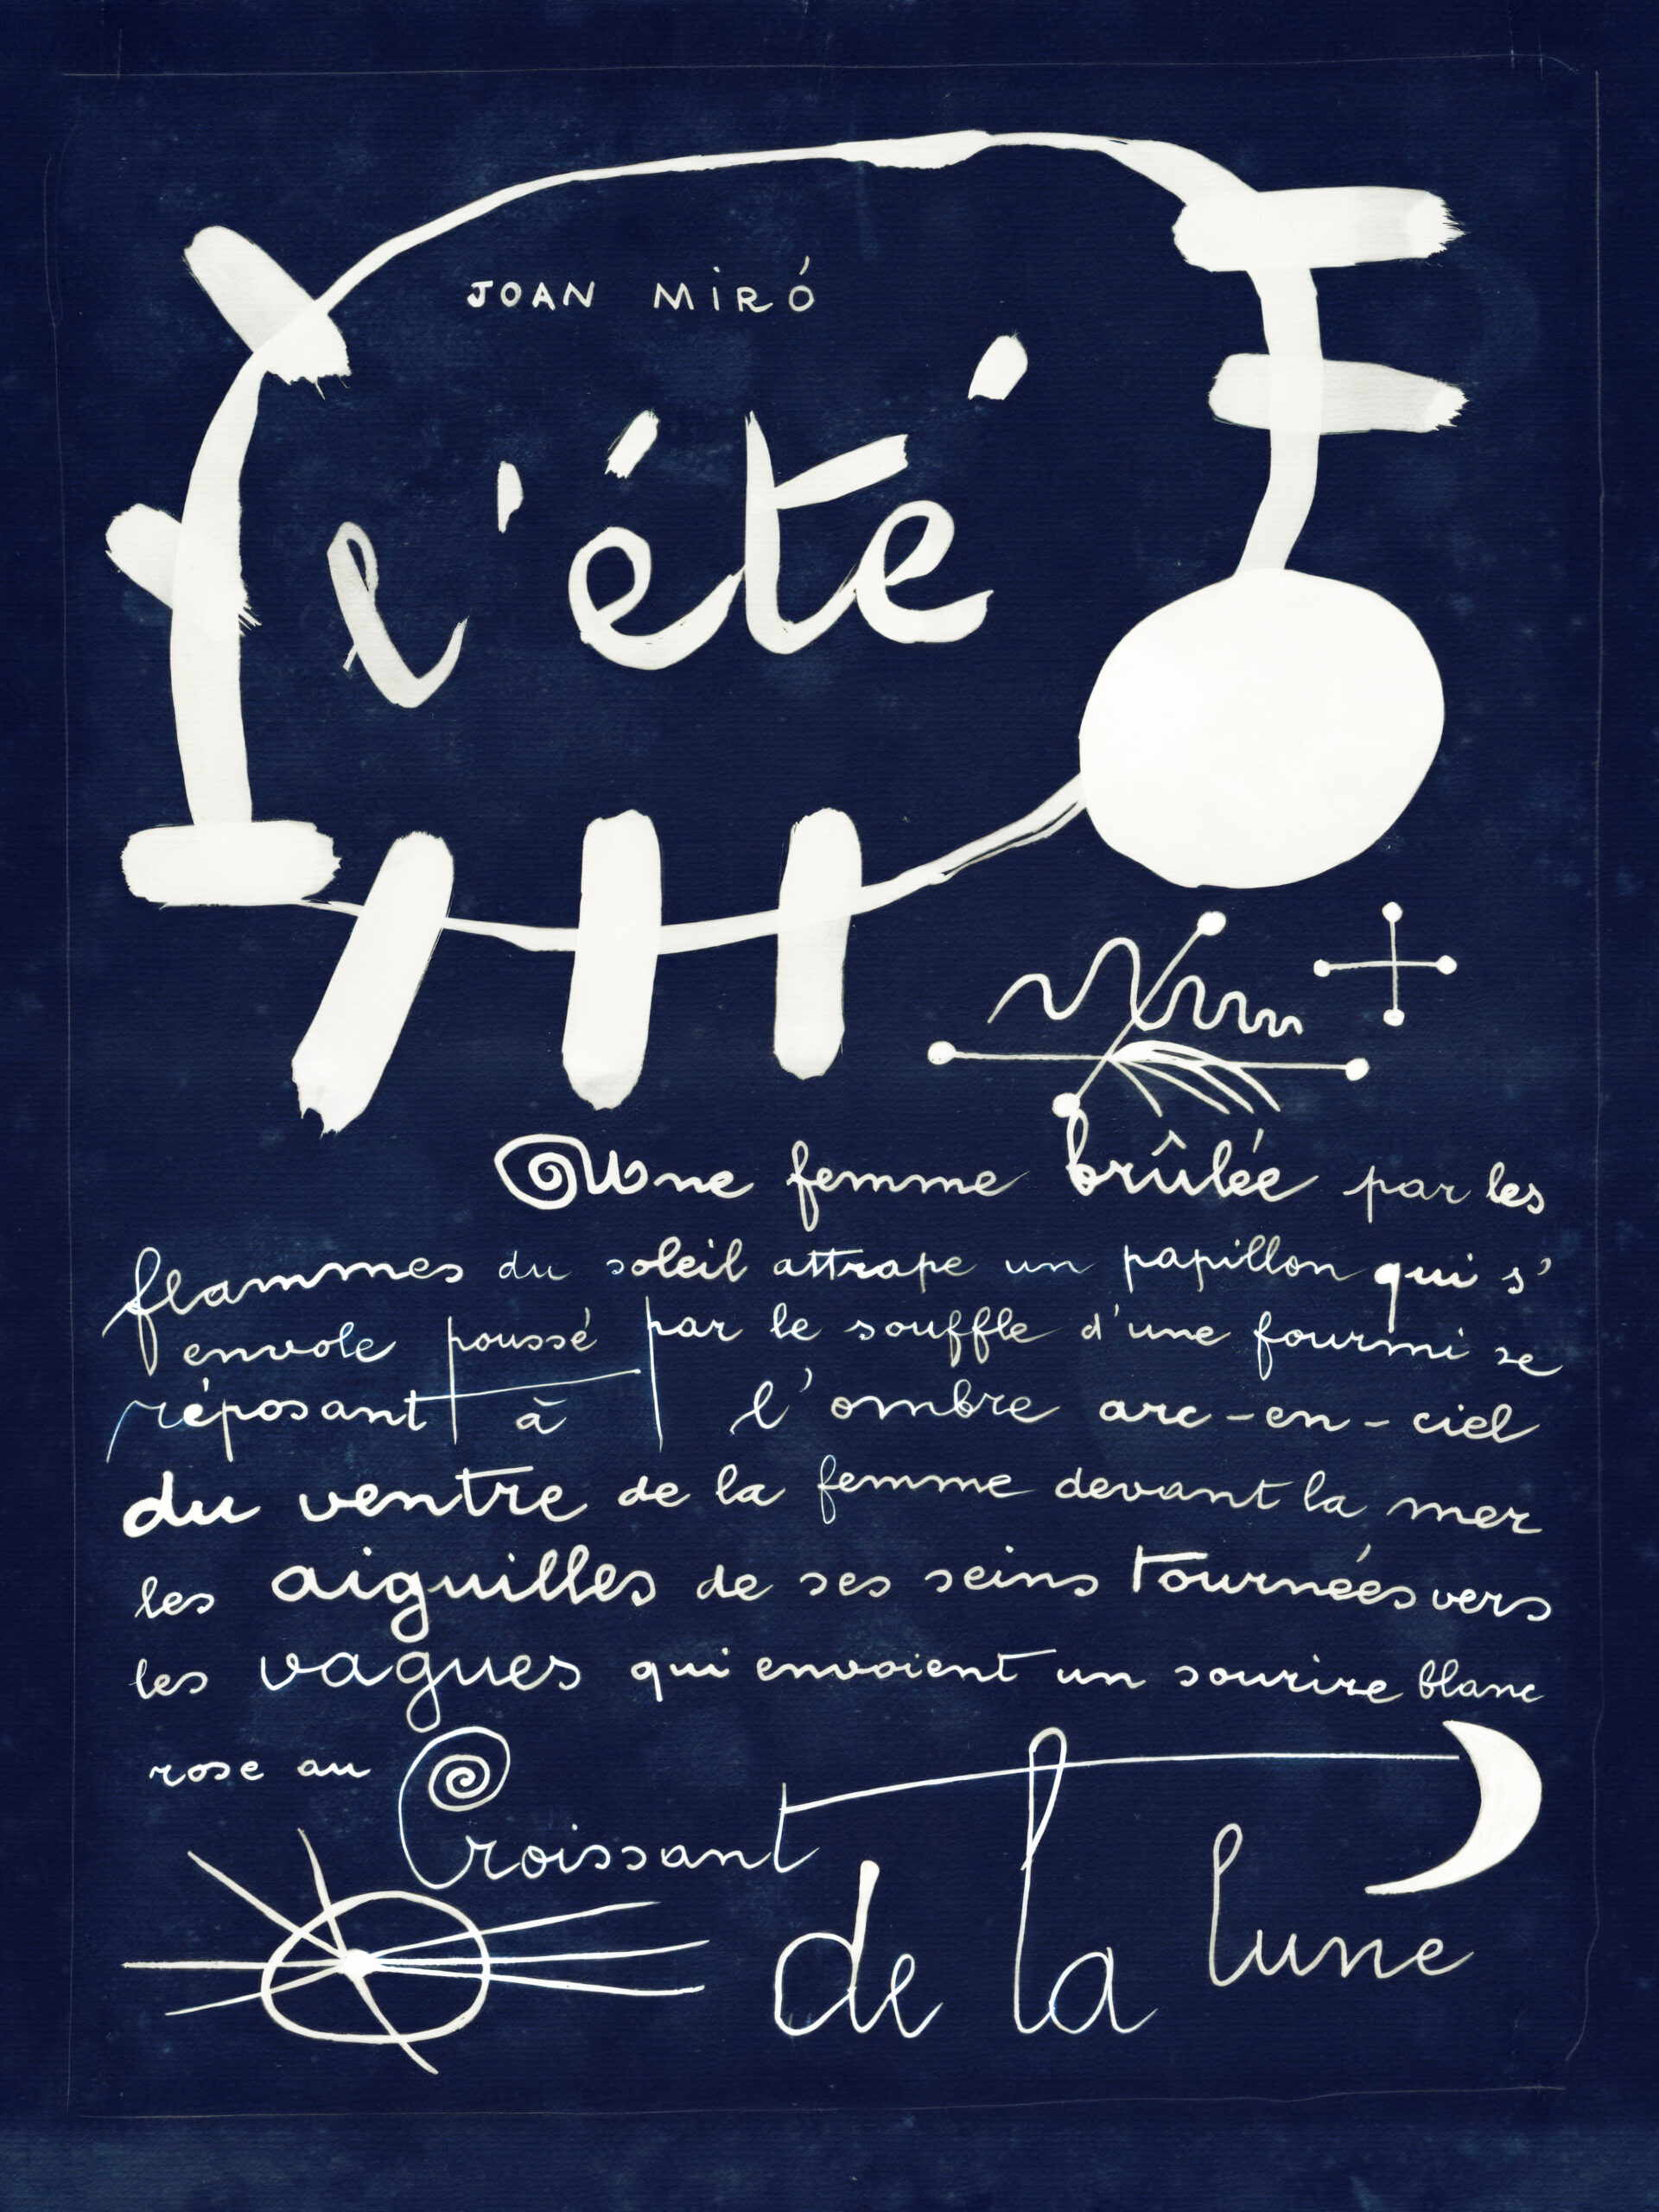 JOAN MIRÓ
l'été
Une femme brûlée par les
flammes du soleil attrape un papillon qui s'
envole poussé par le souffle d'une fourmi se
réposant à l'ombre arc-en-ciel
du ventre de la femme devant la mer
les aiguilles de ses seins tournées vers
les vagues qui envoient un sourire blanc
rose au
Croissant
de la lune